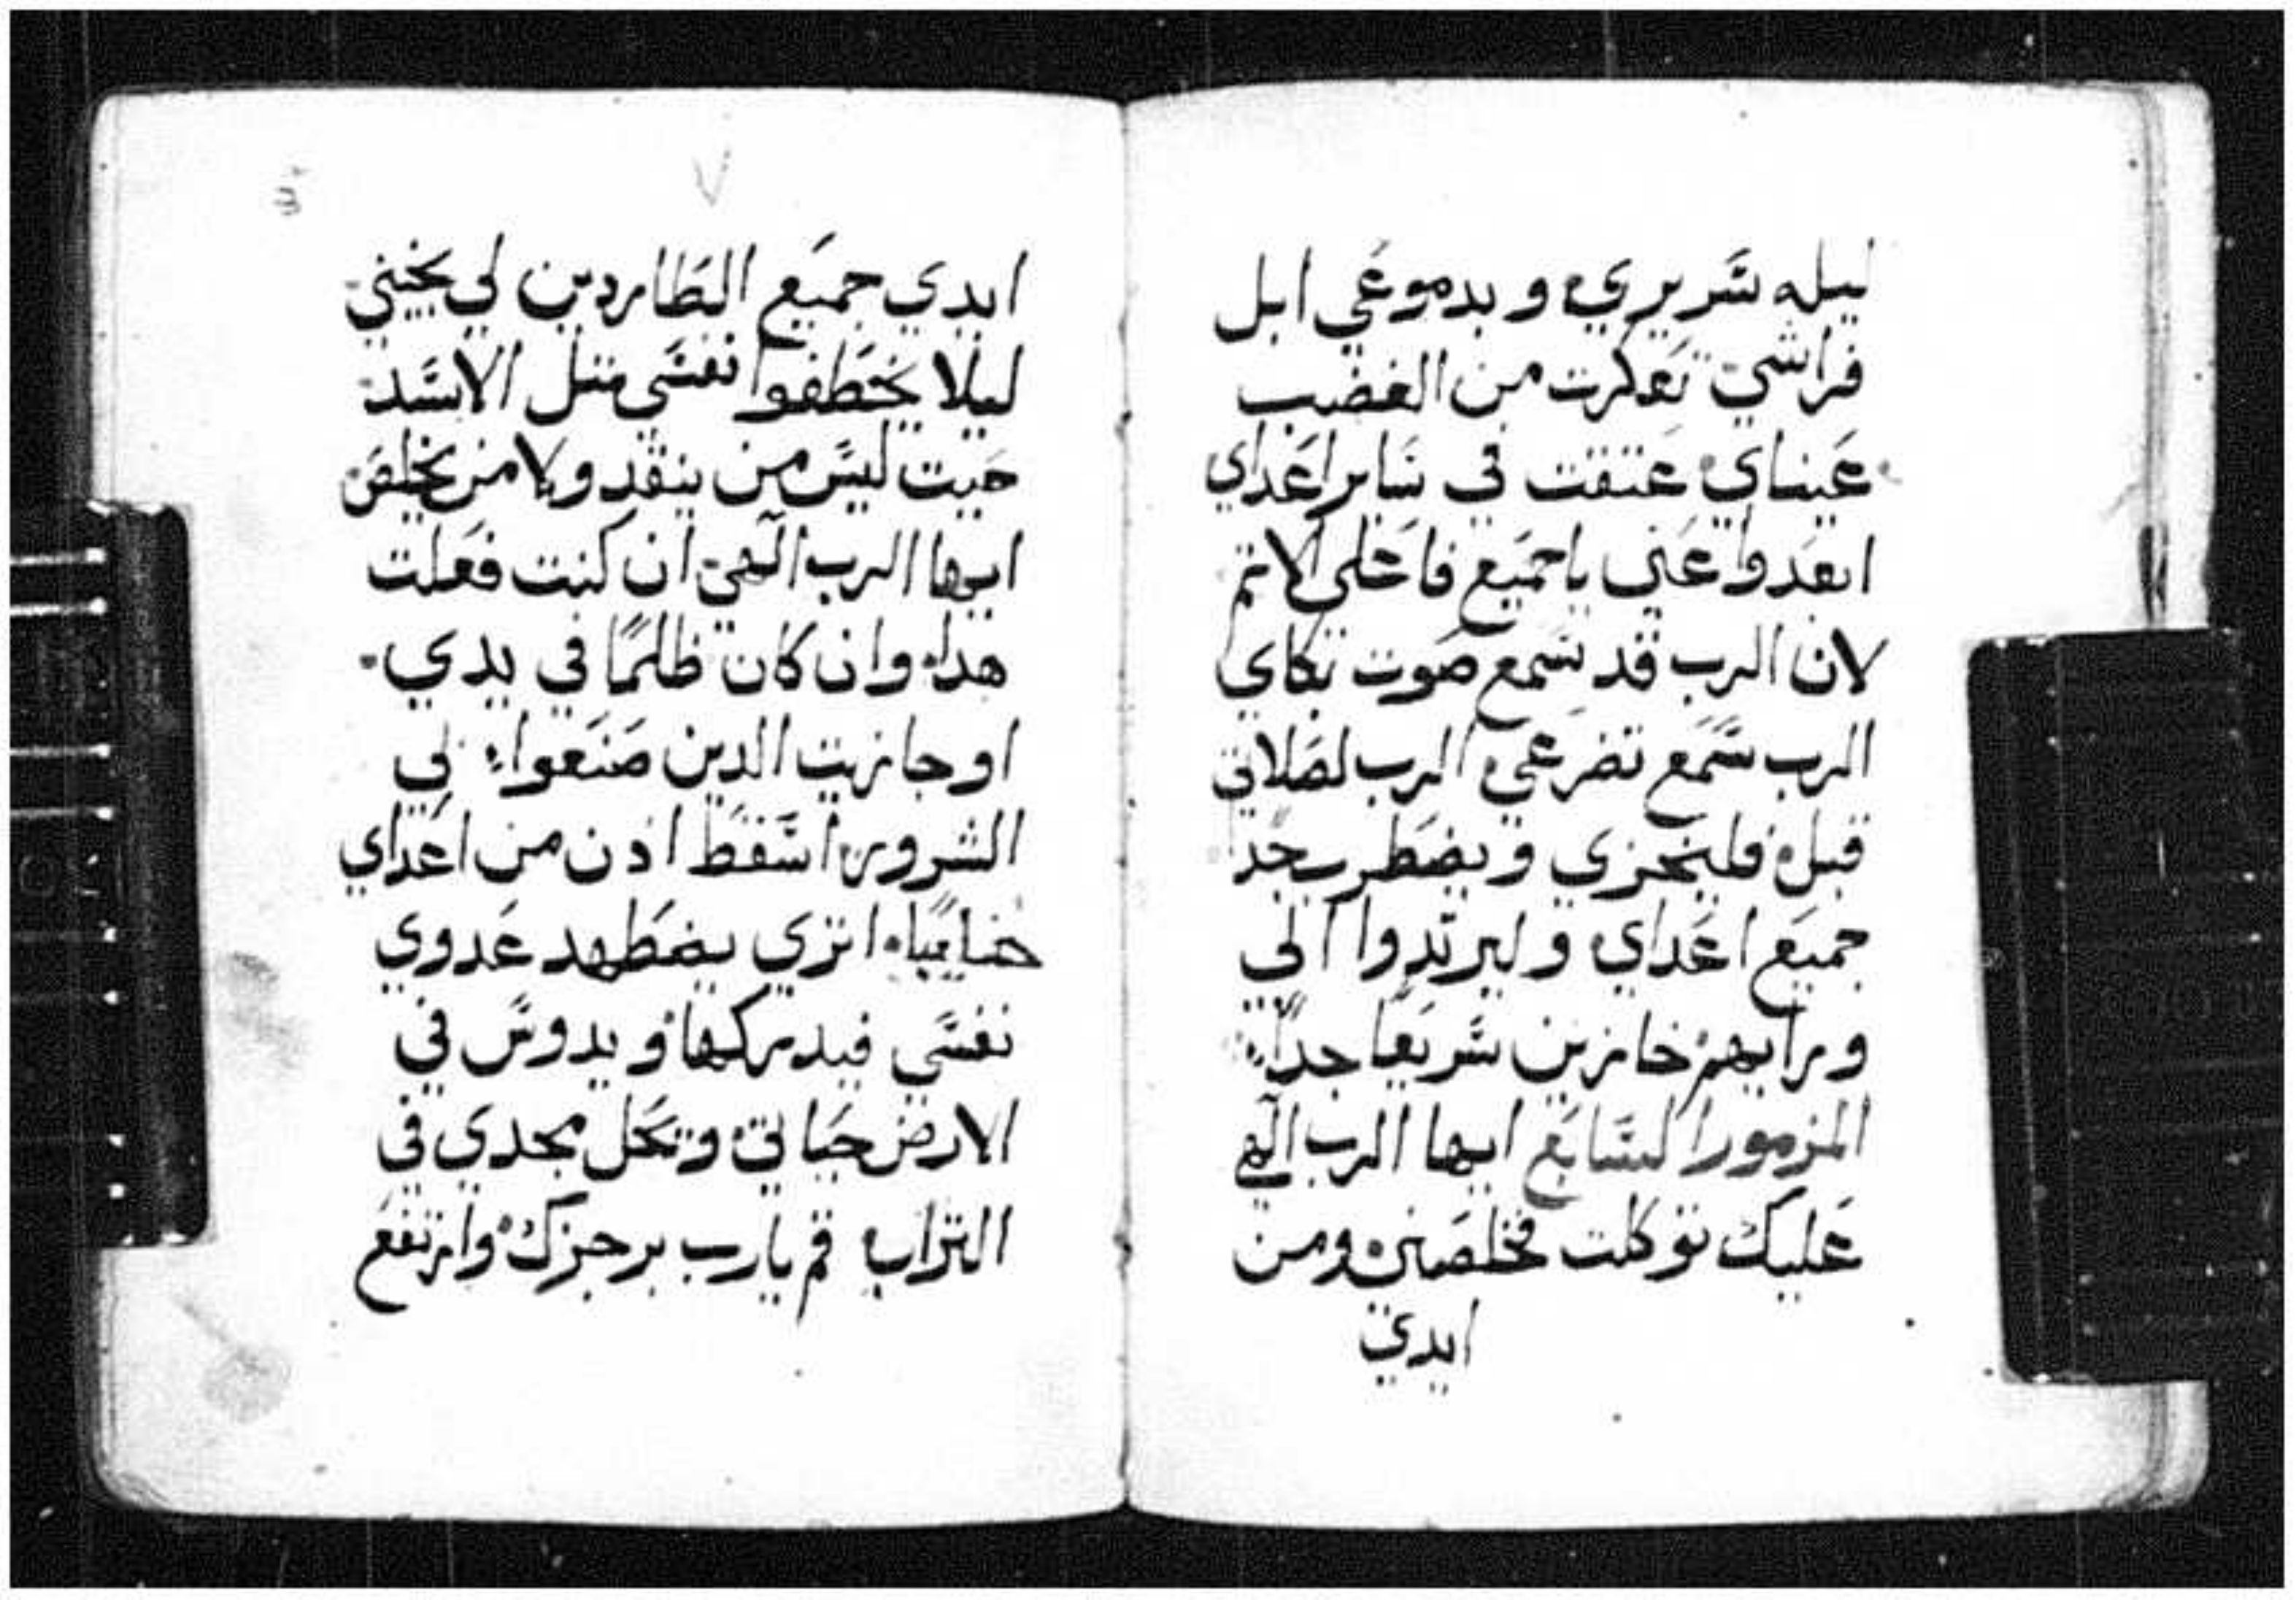 ليله سريري وبدموعي ابل
فراشي تعكرت من الغضب
عيناي عتقت في ساير اعداي
ابعدوا عني ياجميع فاعلي الاتم
لان الرب قد سمع صوت بكاي
الرب سمع تضرعي الرب لصلاتي
قبل فليخزي ويضطرب جدا
جميع اعداي وليرتدوا الي
ورايهم خازين سريعا جداً
المزمور السابع ايها الرب الهي
عليك توكلت فخلصني ومن
ايدي
٧
ايدي جميع الطاردين لي نجيني
ليلا يخطفوا نفسي متل الاسد
حيت ليس من ينقد ولا من يخلص
ايها الرب الهي ان كنت فعلت
هدا وان كان ظلمًا في يدي
او جازيت الدين صنعوا لي
الشرور اسقط ادن من اعداي
خايباً اتري يضطهد عدوي
نفسي فيدركها ويدوس في
الارض حياتي ويحل مجدي في
التراب قم يارب برجزك وارتفع